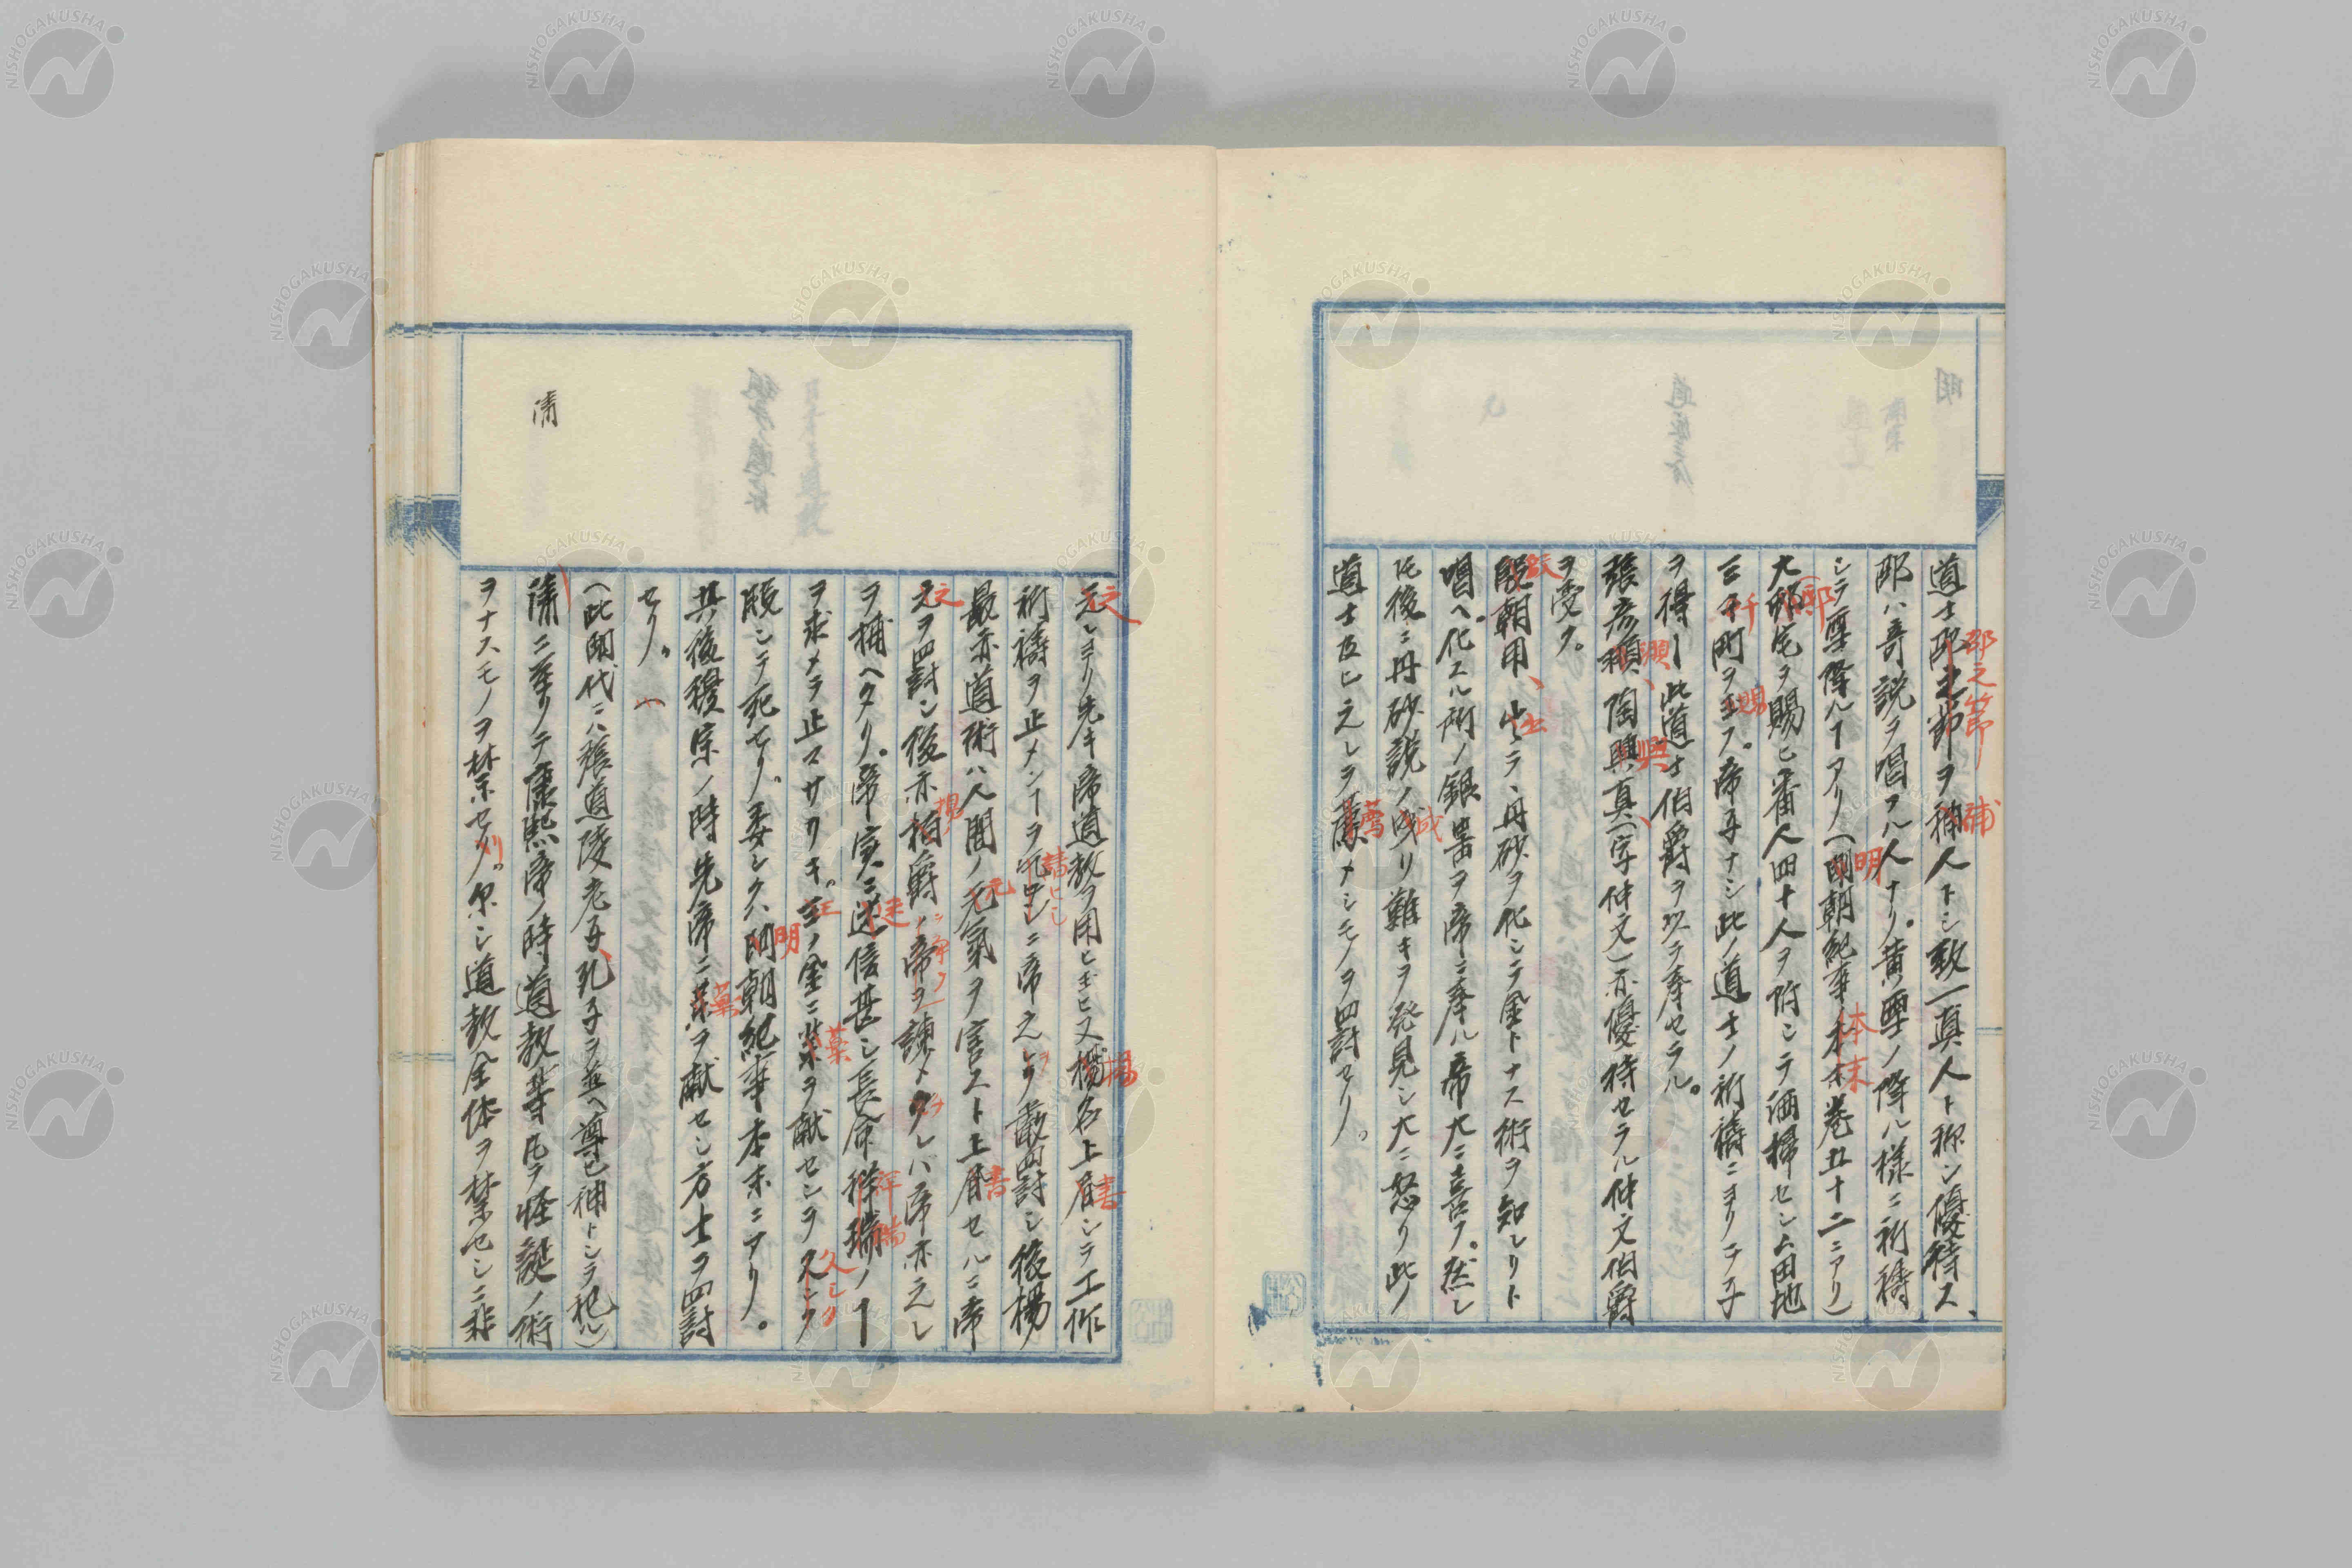 道士邵之節ヲ神人トシ致一真人ト称シ優待ス、
邵之節
補
邵ハ奇説ヲ唱フル人ナリ。黄壇ノ降ル様ニ祈禱
シテ降ルヿアリ(明朝紀事本末巻五十二ニアリ)
明
本末
大邸宅ヲ賜ヒ番人四十人ヲ附シテ洒掃セシム田地
邸
三千町ヲ玉フ。帝子ナシ此ノ道士ノ祈禱ニヨリテ子
千
賜
ヲ得ー此道士伯爵ヲ以テ奉セラル。
張彦頨、陶興真(字仲文)亦優待セラル仲文伯爵
興
ヲ受ク。
段朝用、出テ、丹砂ヲ化シテ金トナス術ヲ知レリト
段
出
唱ヘ化スル所ノ銀器ヲ帝ニ奉ル帝大ニ喜フ。然レ
𪜈後ニ丹砂説ノ成リ難キヲ発見シ大ニ怒リ此ノ
成
道士及ヒ之レヲ薦メシモノヲ四討セリ。
薦
之レヨリ先キ帝道教ヲ用ヒ玉ヒ又楊名上書シテ工作
之
楊
書
祈禱ヲ止メンヿヲ請ヒシニ帝之レヲ敵四討シ後楊
請ヒシ
最亦道術ハ人間ノ元気ヲ害スト上書セルニ帝
元
書
之ヲ四討シ後亦楊爵ノ帝ヲ諫メタレバ帝亦之レ
之
楊
ヲ捕ヘタリ。帝実ニ迷信甚シ長命祥瑞ノヿ
祥瑞
ヲ求メテ止マサリキ。王ノ金ニ薬ヲ献センヲ久シク
王
薬
久シク
服シテ死セリ。委シクハ明朝紀事本末ニアリ。
明
其後穆宗ノ時先帝ニ薬ヲ献セシ方士ヲ四討
薬
セリ。
(此明代ニハ張道陵老子、孔子ヲ並ヘ尊ヒ神トシテ祀ル)
清
清ニ至リテ康熙帝ノ時道教等凡テ怪誕ノ術
ヲナスモノヲ禁セリ。尔シ道教全体ヲ禁セシニ非